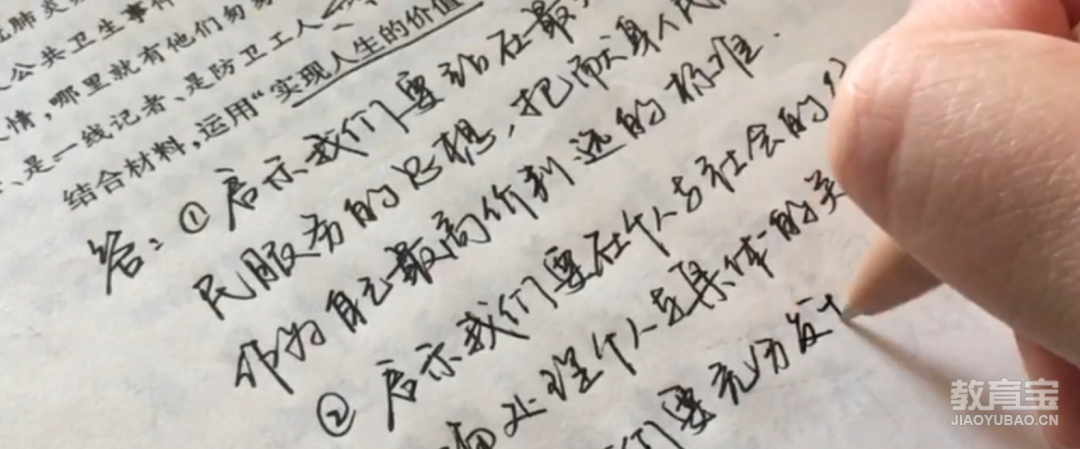 冠肺炎
公共卫生事件
情,哪里就有他们匆匆
、是一线记者、是防卫工人
结合材料,运用“实现人生的价值
答:①启示我们要站在最
民服务的思想,把献身人民
作为自己最高价判选的标准.
②启示我们要在个人与社会的
确处理个人与集体的关
们要充分发
教育宝
JIAOYUBAO.CN